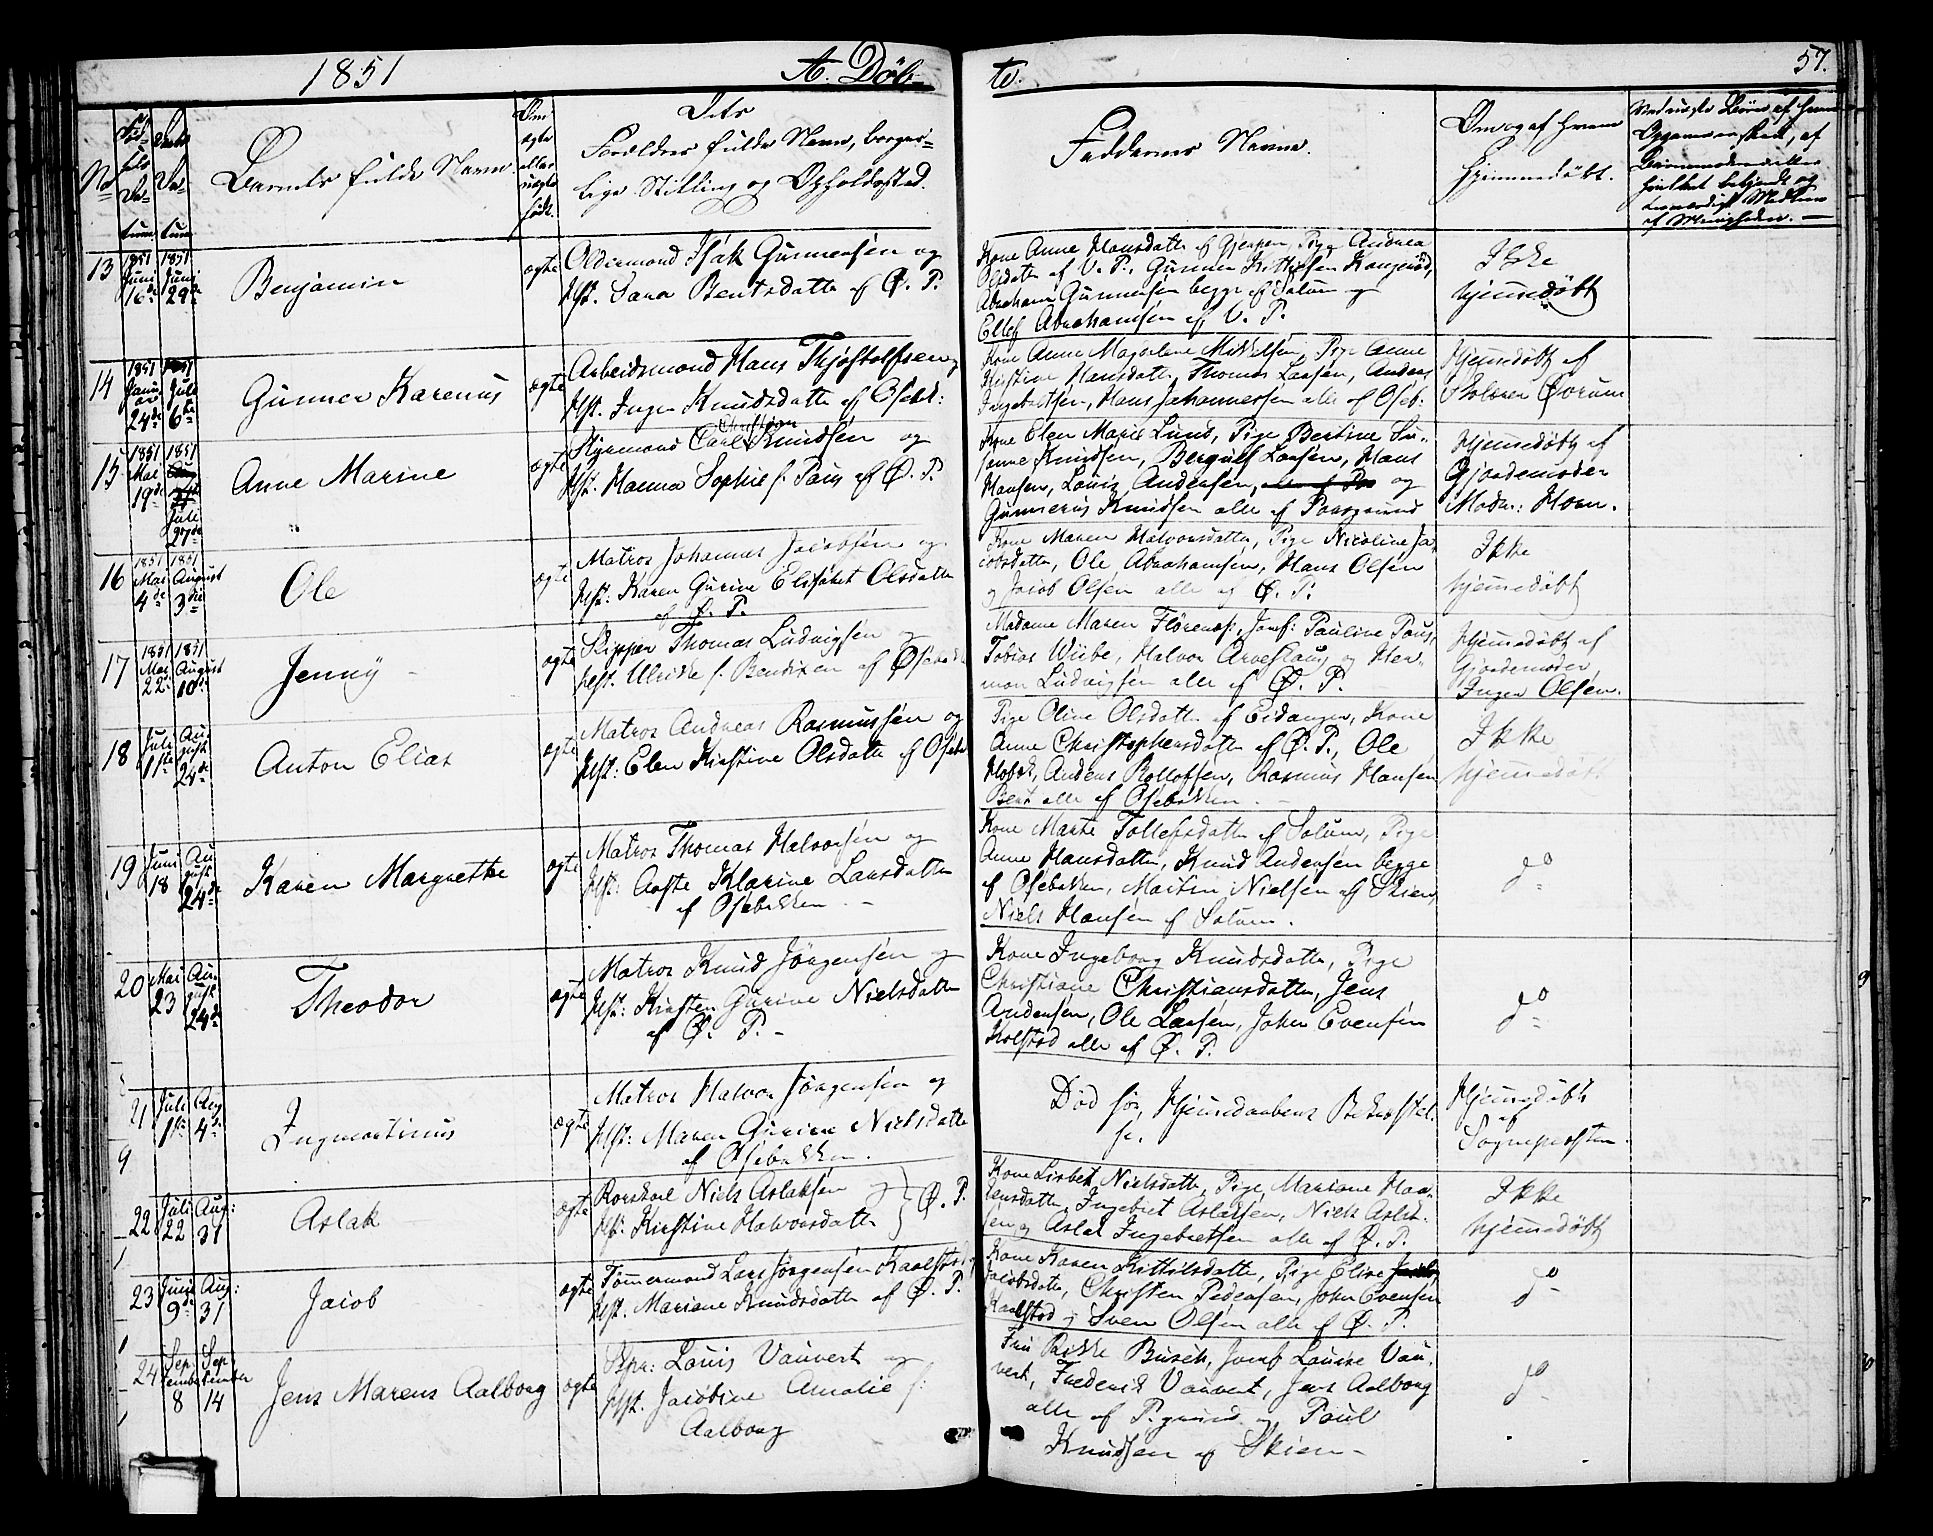 1851
A. Døb-
te.
57.
No
Fød-
sels
Da-
tum
Daabs
Da-
tum
Barnets fulde Navn.
Om
ægte
eller
uægte
født.
Dets
Forældres fulde Navn, borger-
lige Stilling og Opholdssted.
Faddernes Navne.
Om og af hvem
hjemmedøbt.
13
1851 Juni 16de
1851 Juni 29de
Benjamin
ægte
Oldermand Isak Gunnersen og
Hst. Sara Bentsdatter af Ø. P.
Kone Anne Hansdatter af Gjerpen, Pige Andrea
Olsdatter af V. P., Gunner Kittilsen
Abraham Gunnersen begge af Solum og
Ellef Abrahamsen af V. P.
Ikke
hjemmedøbt
14
1851 Januar 24de
1851 Juli 6te
Gunner Karenius
ægte
Arbeidsmand Hans Thjostolfsen og
Hst. Inger Knudsdatter af Osebk:
Kone Anne Magdelene Mikkelsen, Pige Anne
Kirstine Hansdatter, Thomas Larsen, Anders
Ingebretsen, Hans Johannessen alle af Oseb:
Hjemmedøbt af
Skolærer Øvrum
15
1851 Mai 19de
1851 Juli 27de
Anne Marine
ægte
Christian
Styrmand Carl Knudsen og
Hst. Hanna Sophie f. Paus af Ø. P.
Kone Elen Marie Lund, Pige Bertine Su-
sanne Knudsen, Bergulf Larsen, Hans
Hansen, Louis Andersen, og
Gunnerius Knudsen alle af Porsgrund
Hjemmedøbt af
Gjordemoder
Madm: Horn.
16
1851 Mai 4de
1851 August 3die
Ole
ægte
Matros Johannes Jacobsen og
Hst: Karen Gurine Elisabet Olsdatter
af Ø. P.
Kone Maren Halvorsdatter, Pige Nicoline Ja-
cobsdatter, Ole Abrahamsen, Hans Olsen
og Jacob Olsen alle af Ø. P.
Ikke
hjemmedøbt
17
1851 Mai 22
1851 August 10de
Jenny
ægte
Skipper Thomas Ludvigsen og
Hst. Ulrikke f. Bendixen af Osebak
Madame Maren Flørenes, Jomf: Pauline Paus,
Tobias Wiibe, Halvor Arveslaus og Her-
man Ludvigsen alle af Ø. P.
Hjemmedøbt af
Gjordemoder
Inger Olsen.
18
Juli 11te
August 24de
Anton Elias
ægte
Matros Andreas Rasmussen og
Hst: Elen Kirstine Olsdatter af Osebk
Pige Oline Olsdatter af Eidanger, Kone
Anne Christophersdatter af Ø. P., Ole
Anders Rolloffsen, Rasmus Hansen
alle af Osebakken.
Ikke
hjemmedøbt
19
Juni 18
August 24de
Karen Margrethe
ægte
Matros Thomas Halvorsen og
Hst: Aaste Klarine Larsdatter
af Osebakken.
Kone Marte Tollefsdatter af Solum, Pige
Anne Hansdatter, Knud Andersen begge
af Osebakken, Morten Nielsen af Skien
Niels Hansen af Solum.
do
20
Mai 23
August 24de
Theodor
ægte
Matros Knud Jørgensen og
Hst: Kirsten Gurine Nielsdatter
af Ø. P.
Kone Ingeborg Knudsdatter, Pige
Christiane Christiansdatter, Jens
Andersen, Ole Larsen, John Evensen
Kolstad alle af Ø. P.
do
21
Juli 1ste
Aug 4de
Ingmartinus
ægte
Matros Halvor Jørgensen og
Hst: Maren Gurine Nielsdatter
af Osebakken.
Død før Hjemmdaabens Bekræftel-
se.
Hjemmedøbt
af
Sognepresten.
22
Juli 22
Aug: 31
Aslak
ægte
Rorskarl Niels Aslaksen og
Hst: Kirstine Halvorsdatter
Ø. P.
Kone Lisbet Nielsdatter, Pige Mariane Han-
sensdatter, Ingebret Aslaksen, Niels Aslak-
sen og Aslak Ingebretsen alle af Ø. P.
Ikke
hjemmedøbt
23
Juni 9de
Aug: 31
Jacob
ægte
Tømmermand Lars Jørgensen Kaalstad og
Hst. Mariane Knudsdatter af Ø. P.
Kone Karen Kittilsdatter, Pige Elise
Jacobsdatter, Christen Pedersen, John Evensen
Kaalstad og Sven Olsen alle af Ø. P.
do
24
September 8
September 14
Jens Marcus Aalborg
ægte
Skpr: Louis Vauvert og
Hst. Jacobine Amalie f:
Aalborg
Fru Rikke Busch, Jomf Louise Vau-
vert, Frederik Vauvert, Jens Aalborg
alle af P.grund og Poul
Knudsen af Skien
do